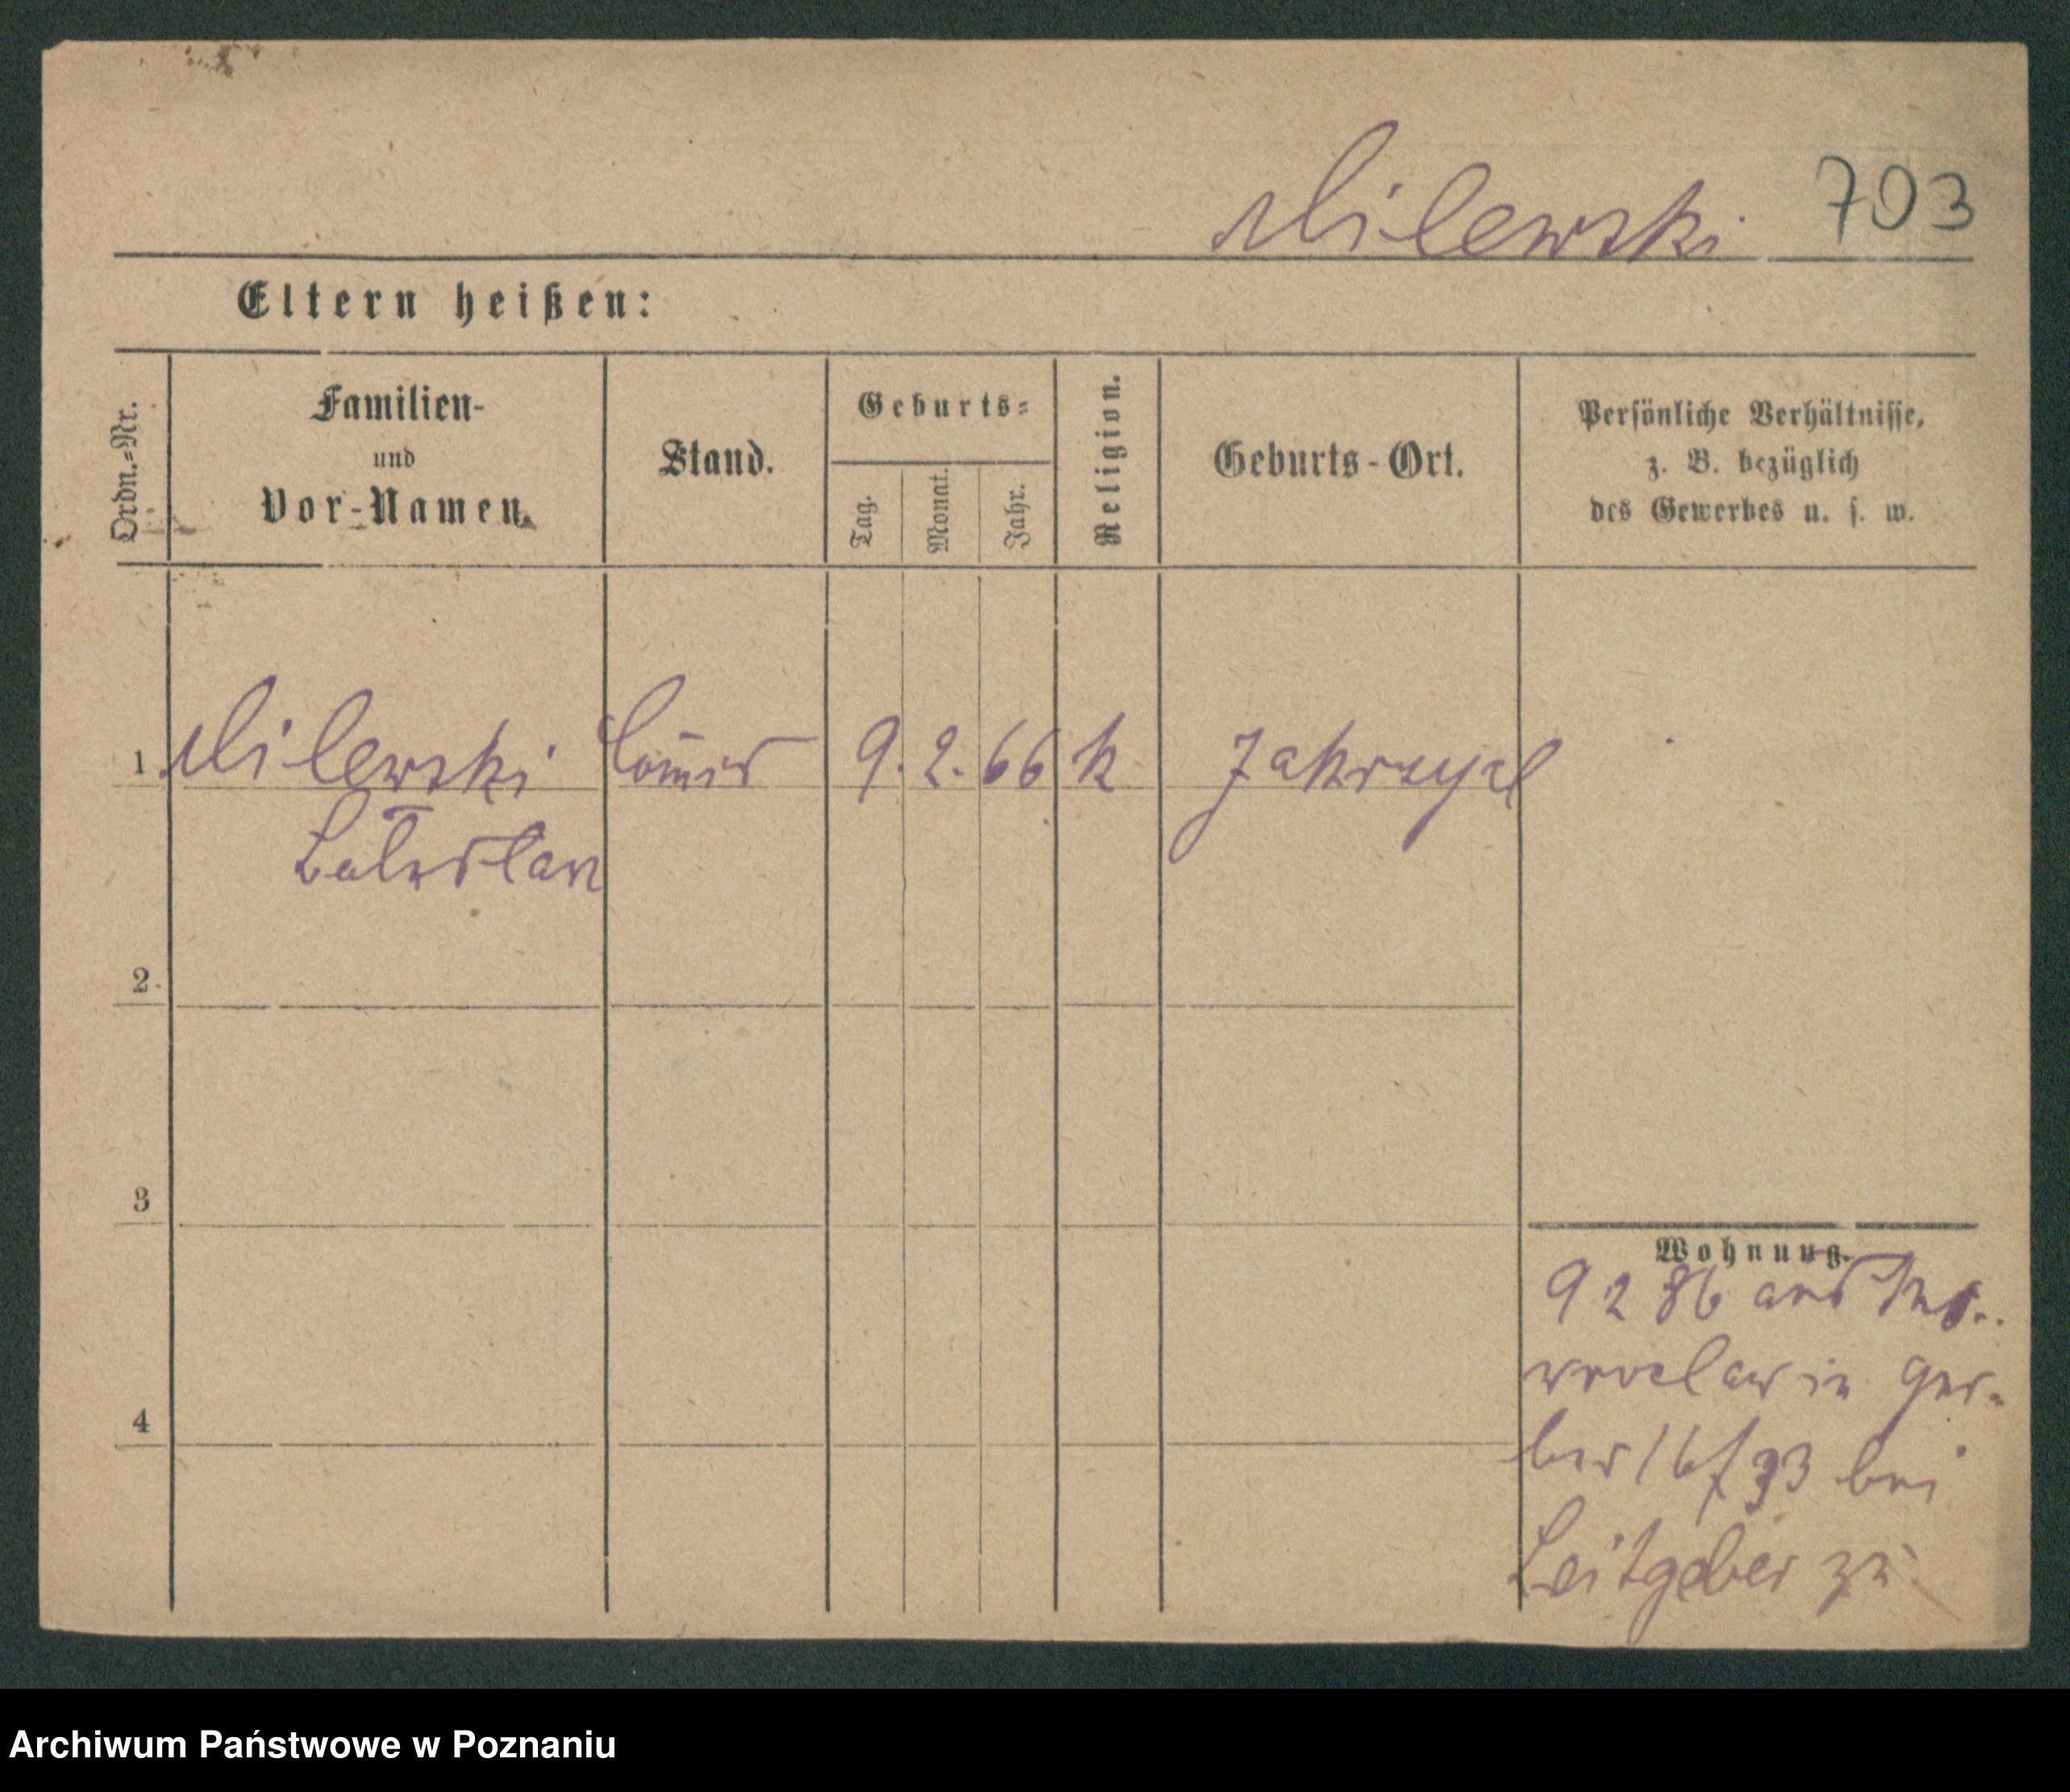 Milewski 703
Eltern heißen:
Ordn.-Nr.
Familien-
und
Vor-Namen.
Stand.
Geburts-
Tag.
Monat.
Jahr.
Religion.
Geburts-Ort.
Persönliche Verhältnisse,
z. B. bezüglich
des Gewerbes u. s. w.
1 Milewski Commis 9. 2. 66 k
2
3
4
Wohnung.
9 2 86 aus
in Ger-
ber 16/ bei
Leitgeber zu
Archiwum Państwowe w Poznaniu